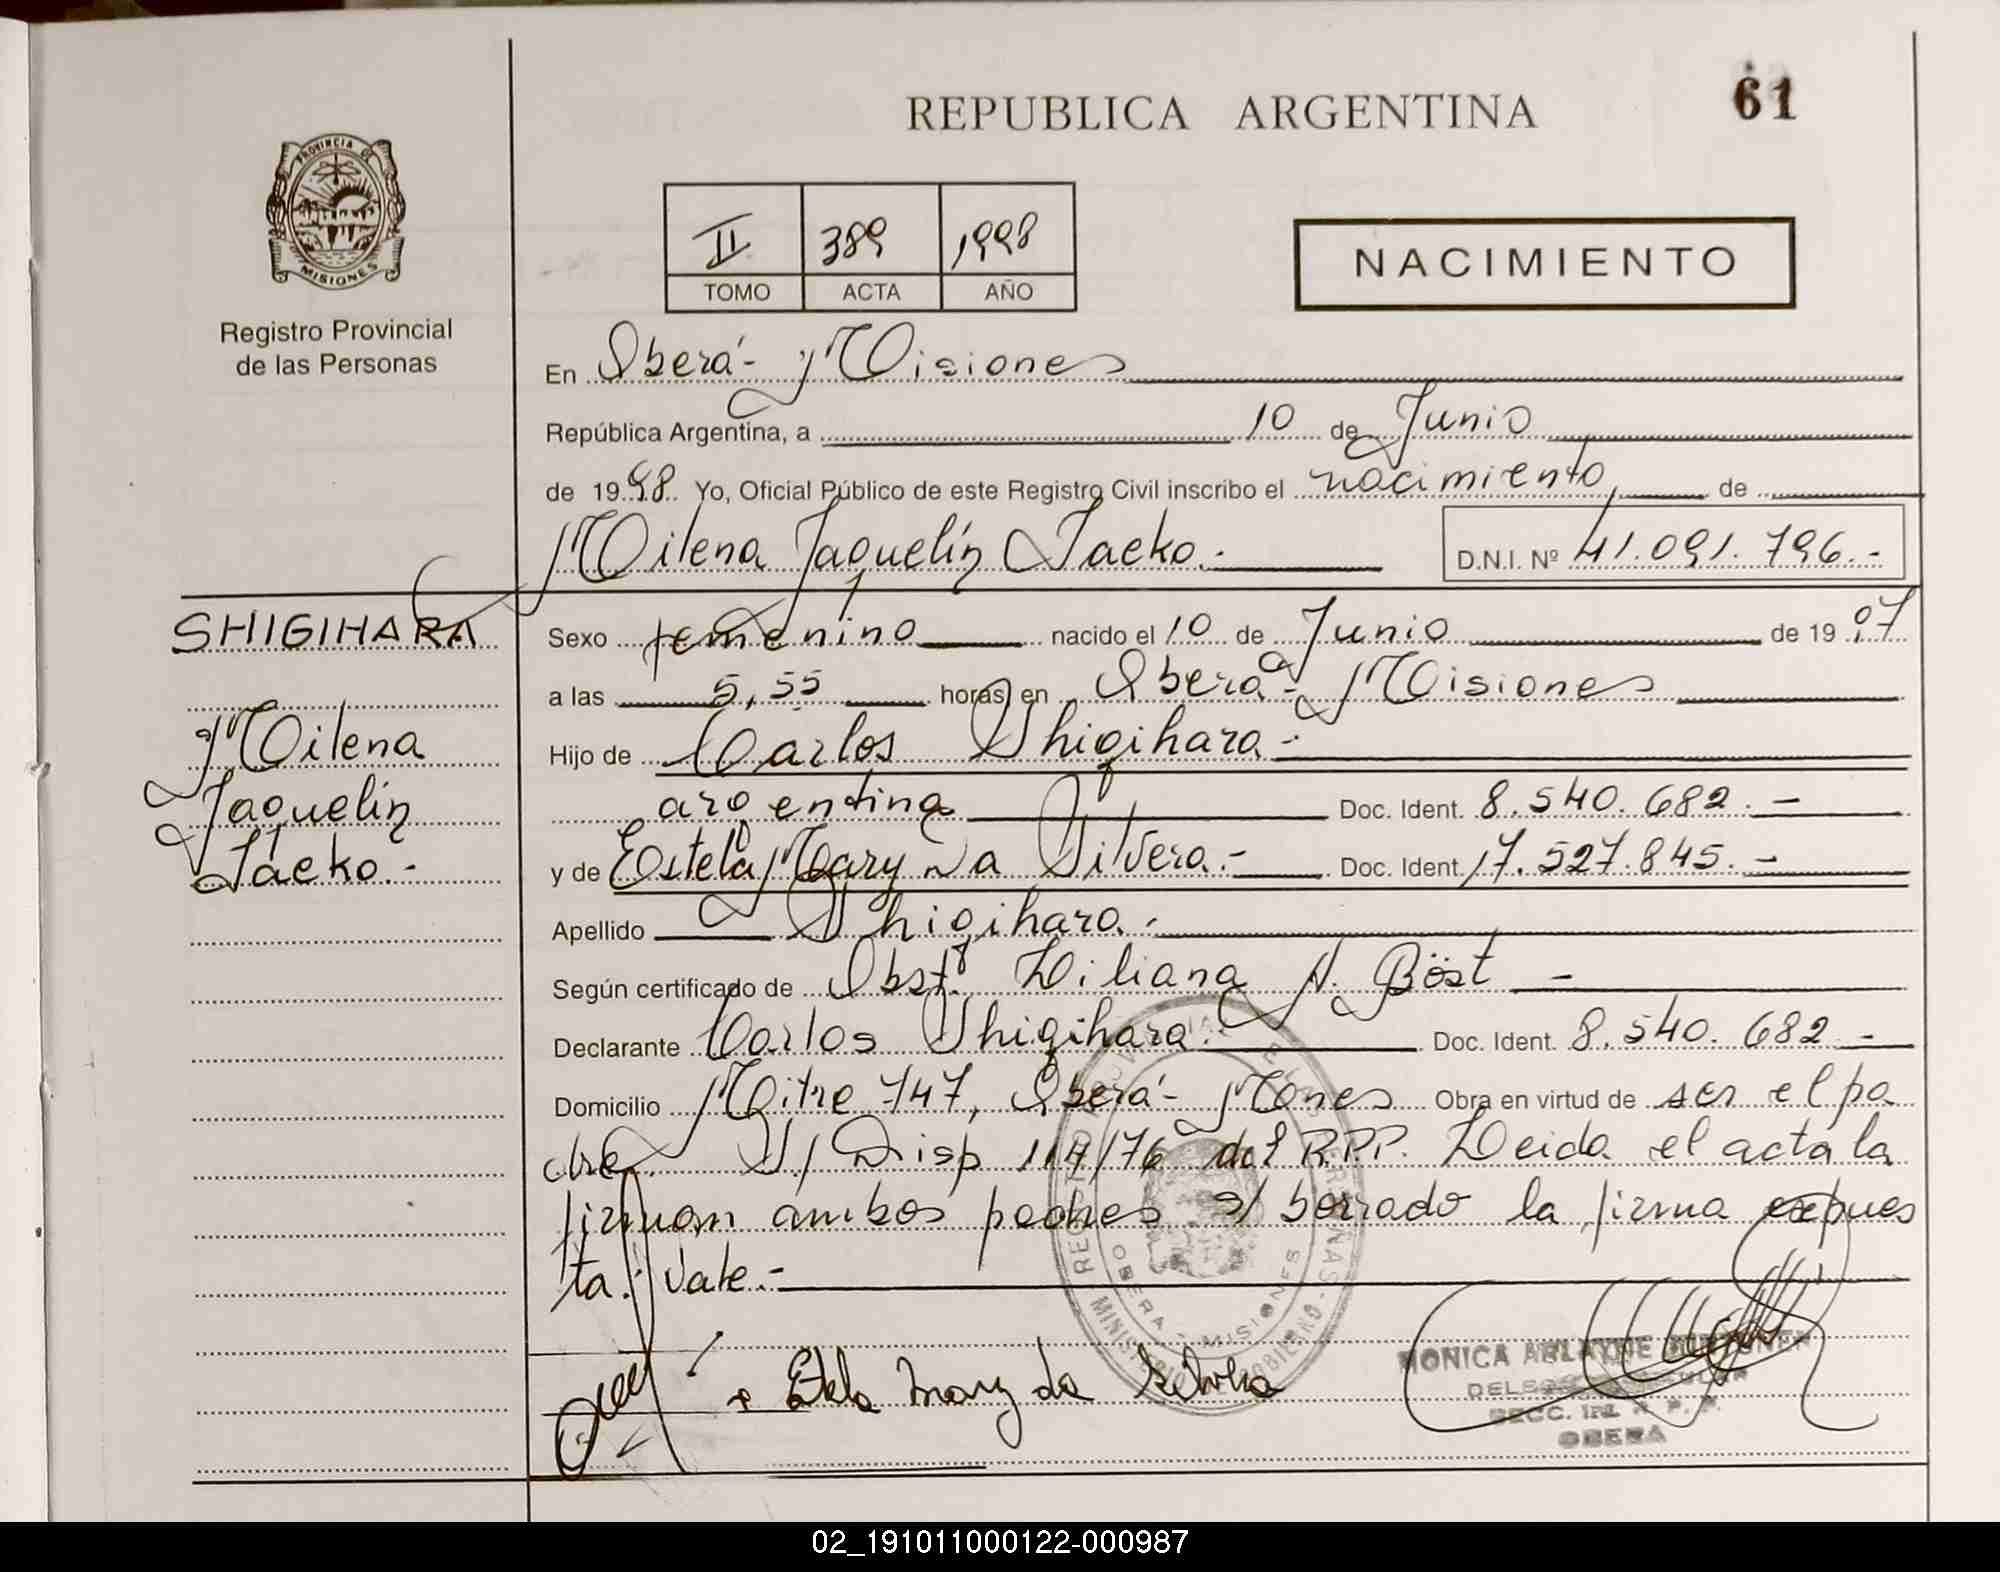 REPUBLICA ARGENTINA
61
PROVINCIA DE
MISIONES
Registro Provincial
de las Personas
II 389 1998
TOMO ACTA AÑO
NACIMIENTO
En Oberá - Misiones
República Argentina, a 10 de Junio
de 1998 Yo, Oficial Público de este Registro Civil inscribo el nacimiento de
Milena Jaquelín Taeko.-
D.N.I. Nº 41.091.796.-
SHIGIHARA
Milena
Jaquelín
Taeko.-
Sexo femenino nacido el 10 de Junio de 19 97
a las 5,55 horas en Oberá - Misiones
Hijo de Carlos Shigihara -
argentina Doc. Ident. 8.540.682.-
y de Estela Mary Da Silvera.- Doc. Ident. 17.527.845.-
Apellido Shigihara.-
Según certificado de Obst. Liliana N. Böst -
Declarante Carlos Shigihara.- Doc. Ident. 8.540.682 -
Domicilio Mitre 747, Oberá - Mones Obra en virtud de ser el pa
dre S/ Disp 117/76 del R.P.P. Leida el acta la
firman ambos padres s/ borrado la firma expues
ta: Vale.-
Estela Mary da
MONICA
OBERA
OBERA - MISIONES
02_191011000122-000987